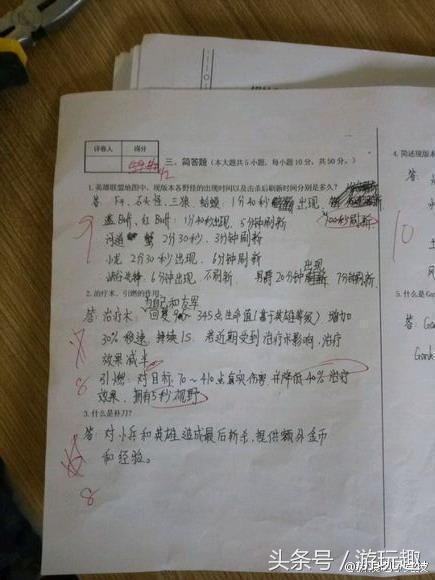 评卷人 得分
三、简答题（本大题共5小题，每小题10分，共50分。）
1. 英雄联盟地图中，现版本各野怪的出现时间以及击杀后刷新时间分别是多久？
答：F4、石头怪、三狼、蛤蟆：1分40秒出现，
100秒刷新
蓝Buff、红Buff：1分40秒出现，5分钟刷新
河道蟹 2分30秒，3分钟刷新
小龙 2分30秒出现，6分钟刷新
峡谷先锋：6分钟出现 不刷新 男爵20分钟出现 7分钟刷新
9
2. 治疗术、引燃的作用
答：治疗术：为自己和友军回复90~345点生命值（基于英雄等级）增加
30%移速，持续1S。若近期受到治疗术影响，治疗
效果减半
引燃：对目标70~410点真实伤害并降低40%治疗
效果、拥有5秒视野
8
3. 什么是补刀？
答：对小兵和英雄造成最后斩杀，提供额外金币
和经验。
8
4. 简述现版本
答：
10
5. 什么是Gank
答：Gank
Gank
头条号 / 游玩趣